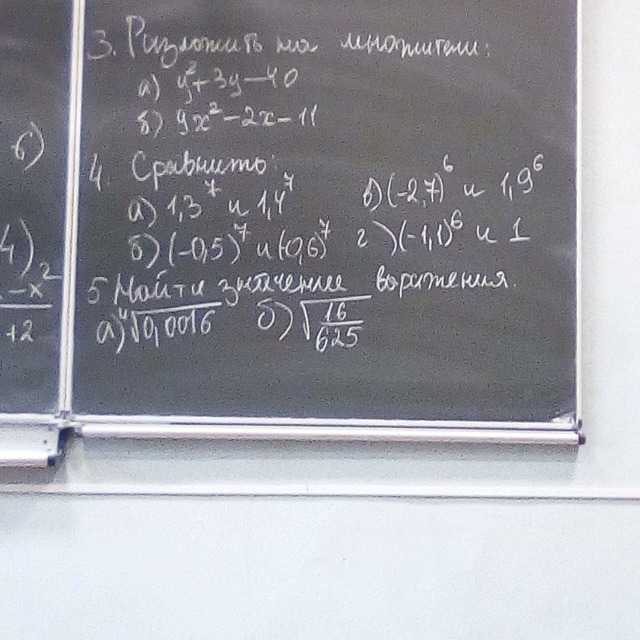 б)
4)
2
-x²
+2
3. Разложить на множители:
а) y²+3y-40
б) 9x²-2x-11
4. Сравнить:
а) 1,3⁷ и 1,4⁷ в) (-2,7)⁶ и 1,9⁶
б) (-0,5)⁷ и (-0,6)⁷ г) (-1,1)⁶ и 1
5 Найти значение выражения.
а) ⁴√0,0016 б) √16/625